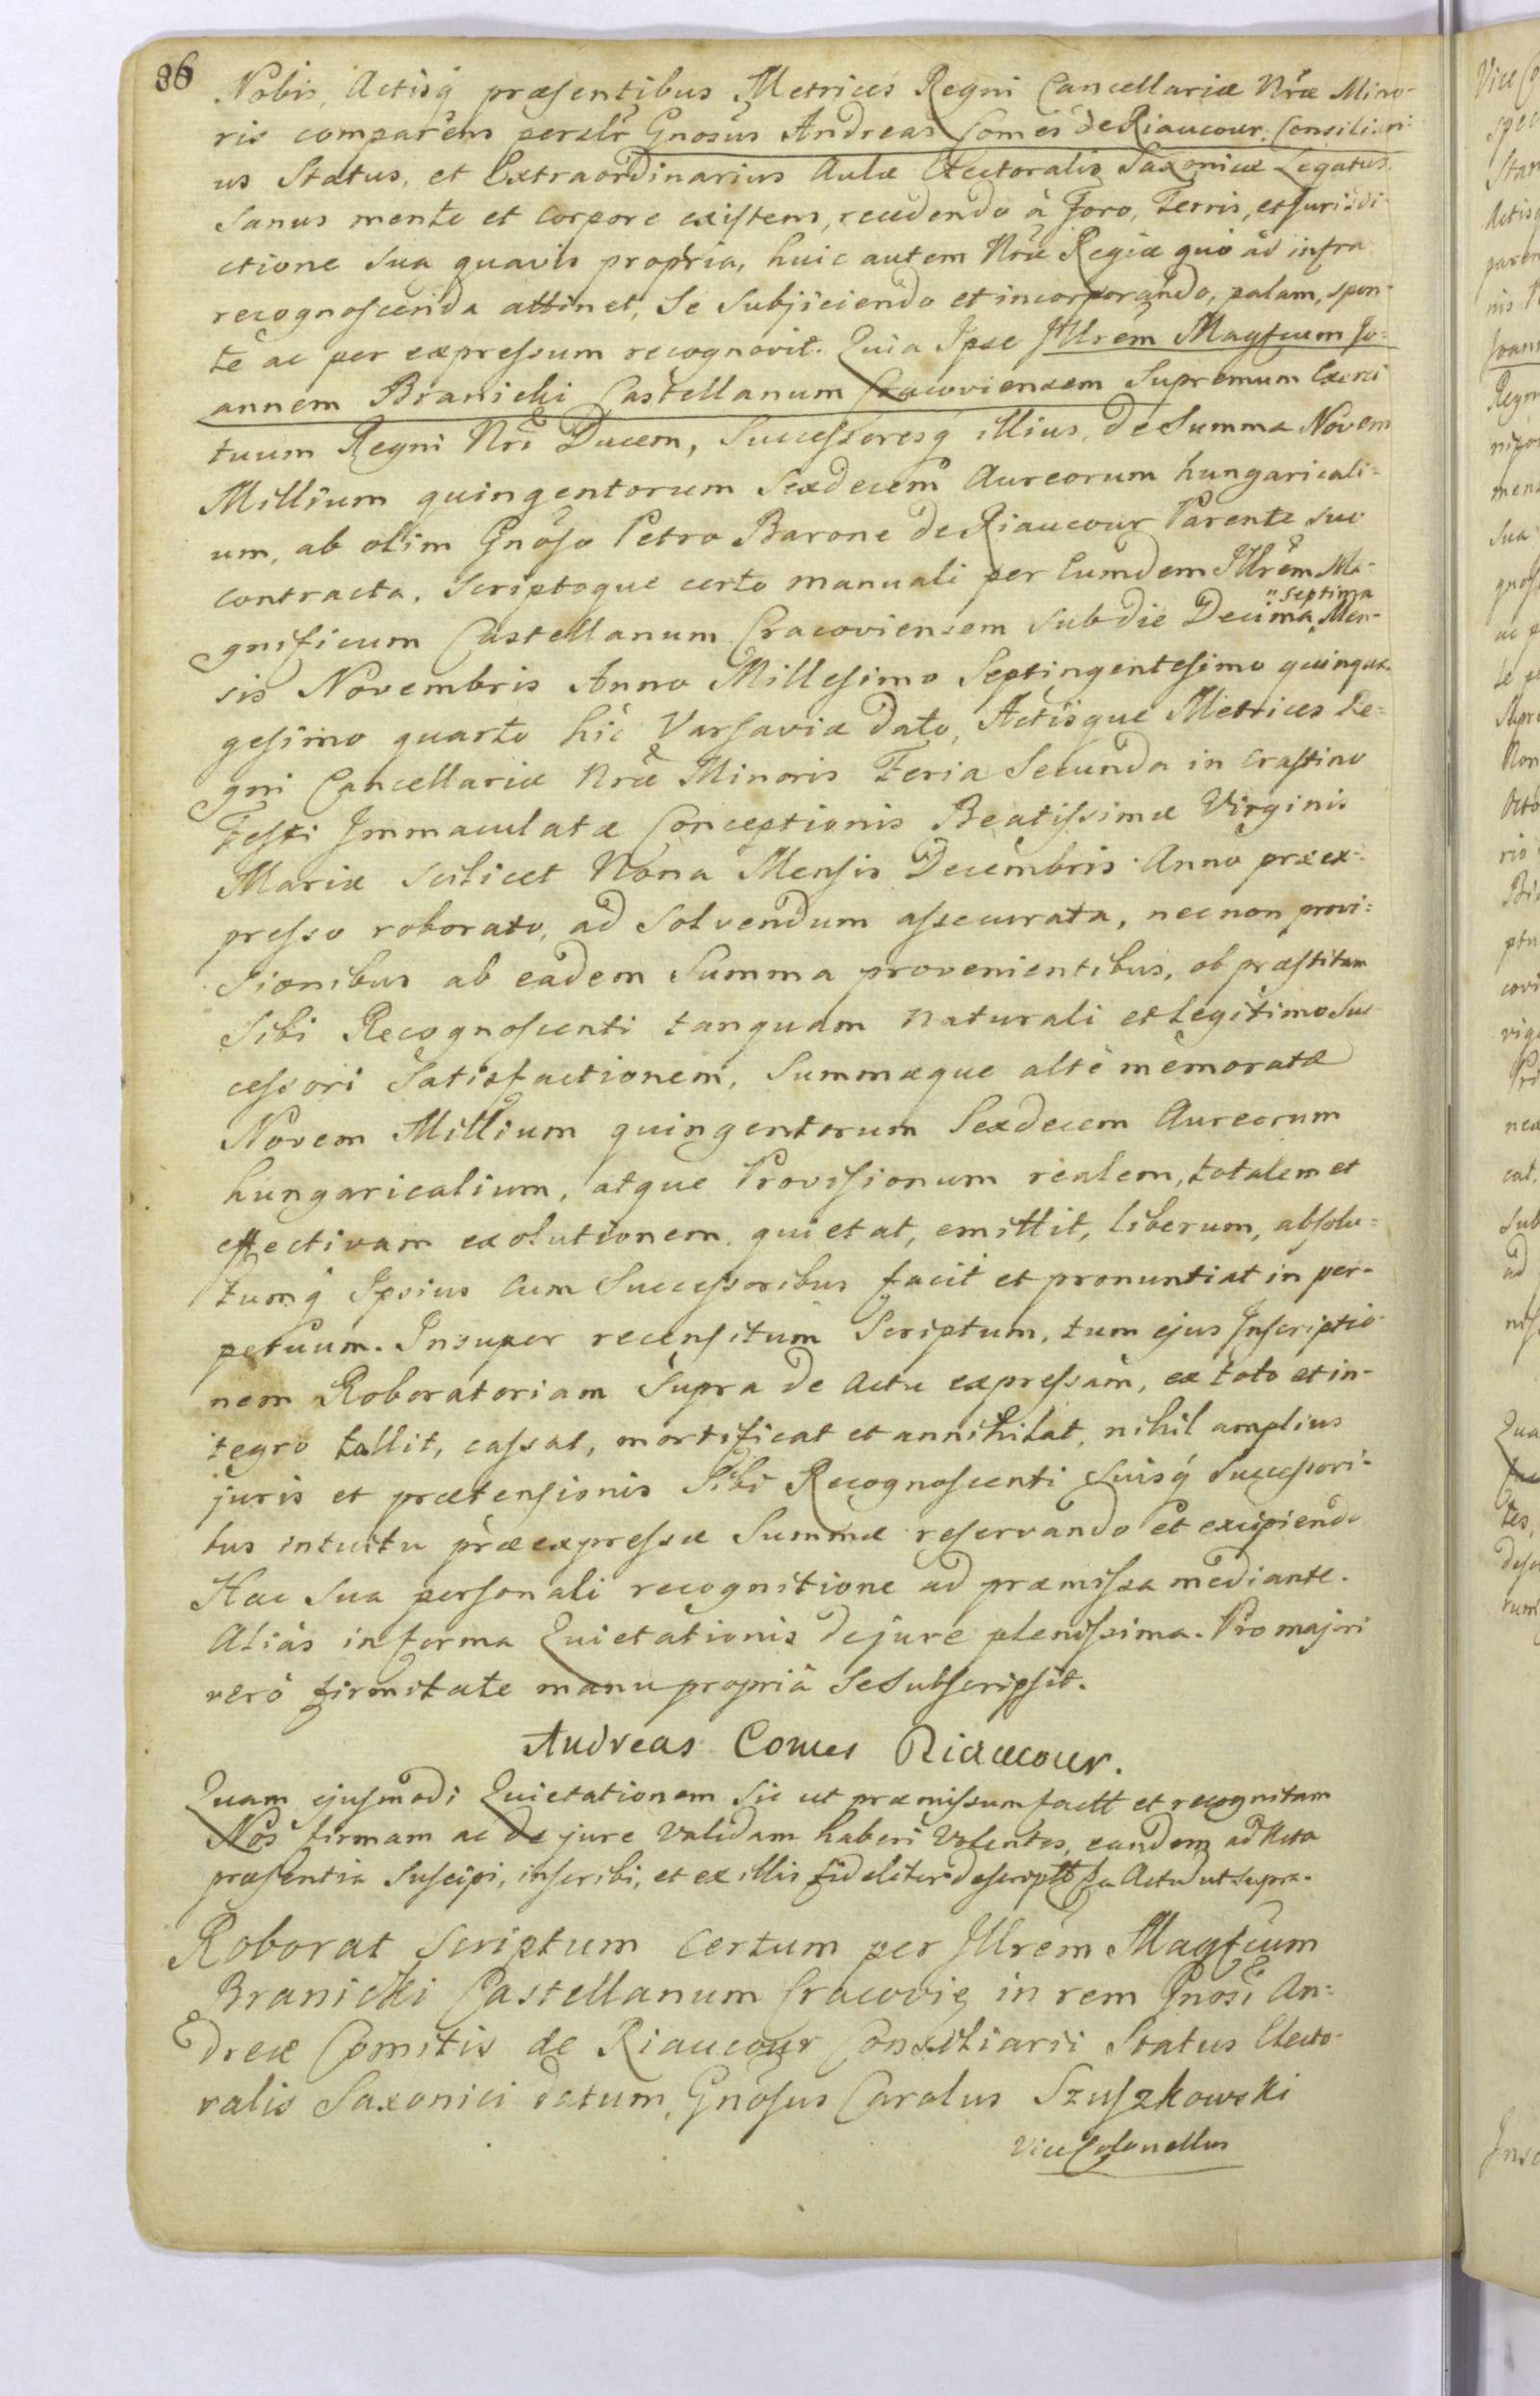 86
Nobis, Actisq præsentibus Metrices Regni Cancellariæ Nræ Mino-
ris comparens perslr Gnosus Andreas Comes de Riaucour Consiliari-
us Status, et Extraordinarius Aulæ Electoralis Saxonicæ Legatus.
Sanus mente et corpore existens, recedendo à Foro, Terris, et Jurisdi-
ctione sua quavis propria, huic autem Nræ Regiæ quò ad infra
recognoscenda attinet, se subjiciendo et incorporando, palam, spon-
te ac per expressum recognovit. Quia Ipse Illrem Magfcum Jo-
annem Branicki Castellanum Cracoviensem Supremum Exerci
tuum Regni Nri Ducem, Successoresq illius, de Summa Novem
Millium quingentorum Sexdecem Aureorum hungaricali=
um, ab olim Gnoso Petro Barone de Riaucour Parente suo
contracta, Scriptoque certo manuali per Eumdem Illrem Ma-
gnificum Castellanum Cracoviensem sub die Decima "septima Men-
sis Novembris Anno Millesimo Septingentesimo quinqua-
gesimo quarto hic Varsaviæ dato, Actisque Metrices Re=
gni Cancellariæ Nræ Minoris Feria Secunda in crastino
Festi Immaculatæ Conceptionis Beatissimæ Virginis
Mariæ scilicet Nona Mensis Decembris Anno præex-
presso roborato, ad solvendum assecurata, necnon provi=
sionibus ab eadem Summa provenientibus, ob præstitam
Sibi Recognoscenti tanquam naturali et legitimo Suc
cessori Satisfactionem, Summæque altè memoratæ
Novem Millium quingentorum Sexdecem Aureorum
hungaricalium, atque Provisionum realem, totalem et
effectivam exolutionem, quietat, emittit, liberum, absolu=
tumq Ipsius cum Successoribus facit et pronuntiat in per-
petuum. Insuper recensitum Scriptum, tum ejus Inscriptio-
nem Roboratoriam Supra de Actu expressam, ex toto et in-
tegro tollit, cassat, mortificat et annihilat, nihil amplius
juris et prætensionis Sibi Recognoscenti Suisq Successori-
bus intuitu præexpressæ Summæ reservando et excipiendo
Hac Sua personali recognitione ad præmissa mediante.
Aliàs in forma Quietationis de jure plenissima. Pro majori
verò firmitate manu propriâ Se Subscripsit.
Andreas Comes Riaucour.
Quam ejusmodi Quietationem Sic ut præmissum factt et recognitam
Nos firmam ac de jure validam haberi Volentes, eandem ad Acta
præsentia Suscipi, inscribi, et ex illis fideliter descriptt Actu ut supra.
Roborat Scriptum certum per Illrem Magfcum
Branicki Castellanum Cracovię in rem Gnosi An=
dreæ Comitis de Riaucour Consiliarii Status Electo-
ralis Saxonici datum, Gnosus Carolus Szuszkowski
Vice Colonellus